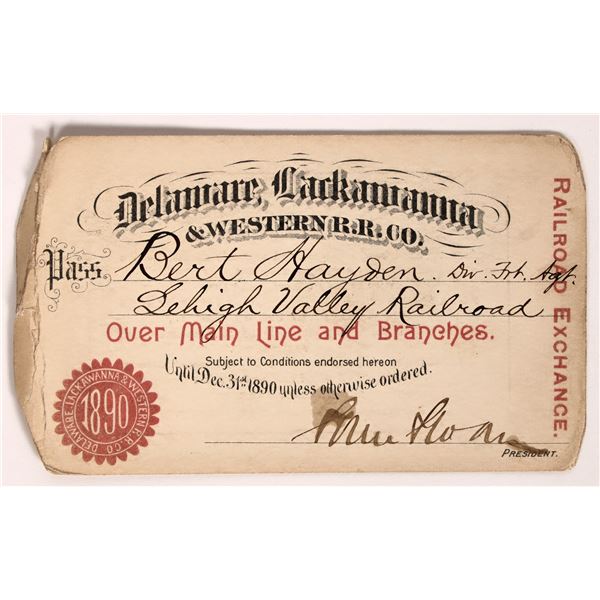 Delaware, Lackawanna
& WESTERN R.R. CO.
Pass Bert Hayden. Div. Frt. Agt.
Lehigh Valley Railroad
Over Main Line and Branches.
Subject to Conditions endorsed hereon
Until Dec. 31st 1890 unless otherwise ordered.
Sam Sloan
PRESIDENT.
RAILROAD EXCHANGE.
DELAWARE LACKAWANNA & WESTERN R.R. CO.
1890